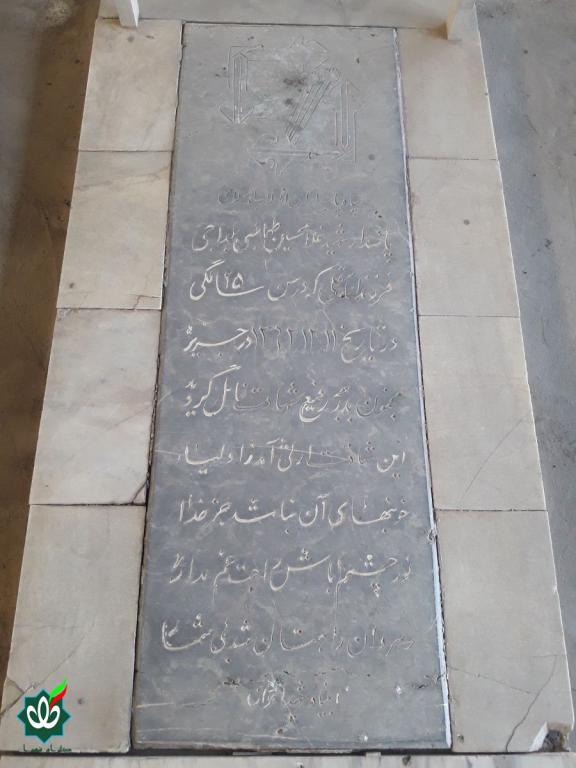 پاسدار شهید غلامحسین طهماسبی
فرزند که در سن ۲۵ سالگی
در تاریخ ۱۳۶۲،۱۲،۱۱ در جزیره
مجنون بدرجه رفیع شهادت نائل گردید
این شهادت ارث آمد ز اولیاء
خونبهای آن نباشد جز خدا
نور چشم باش راحت غم مدار
رهروان راهتان شد بی شمار
بنیاد شهید